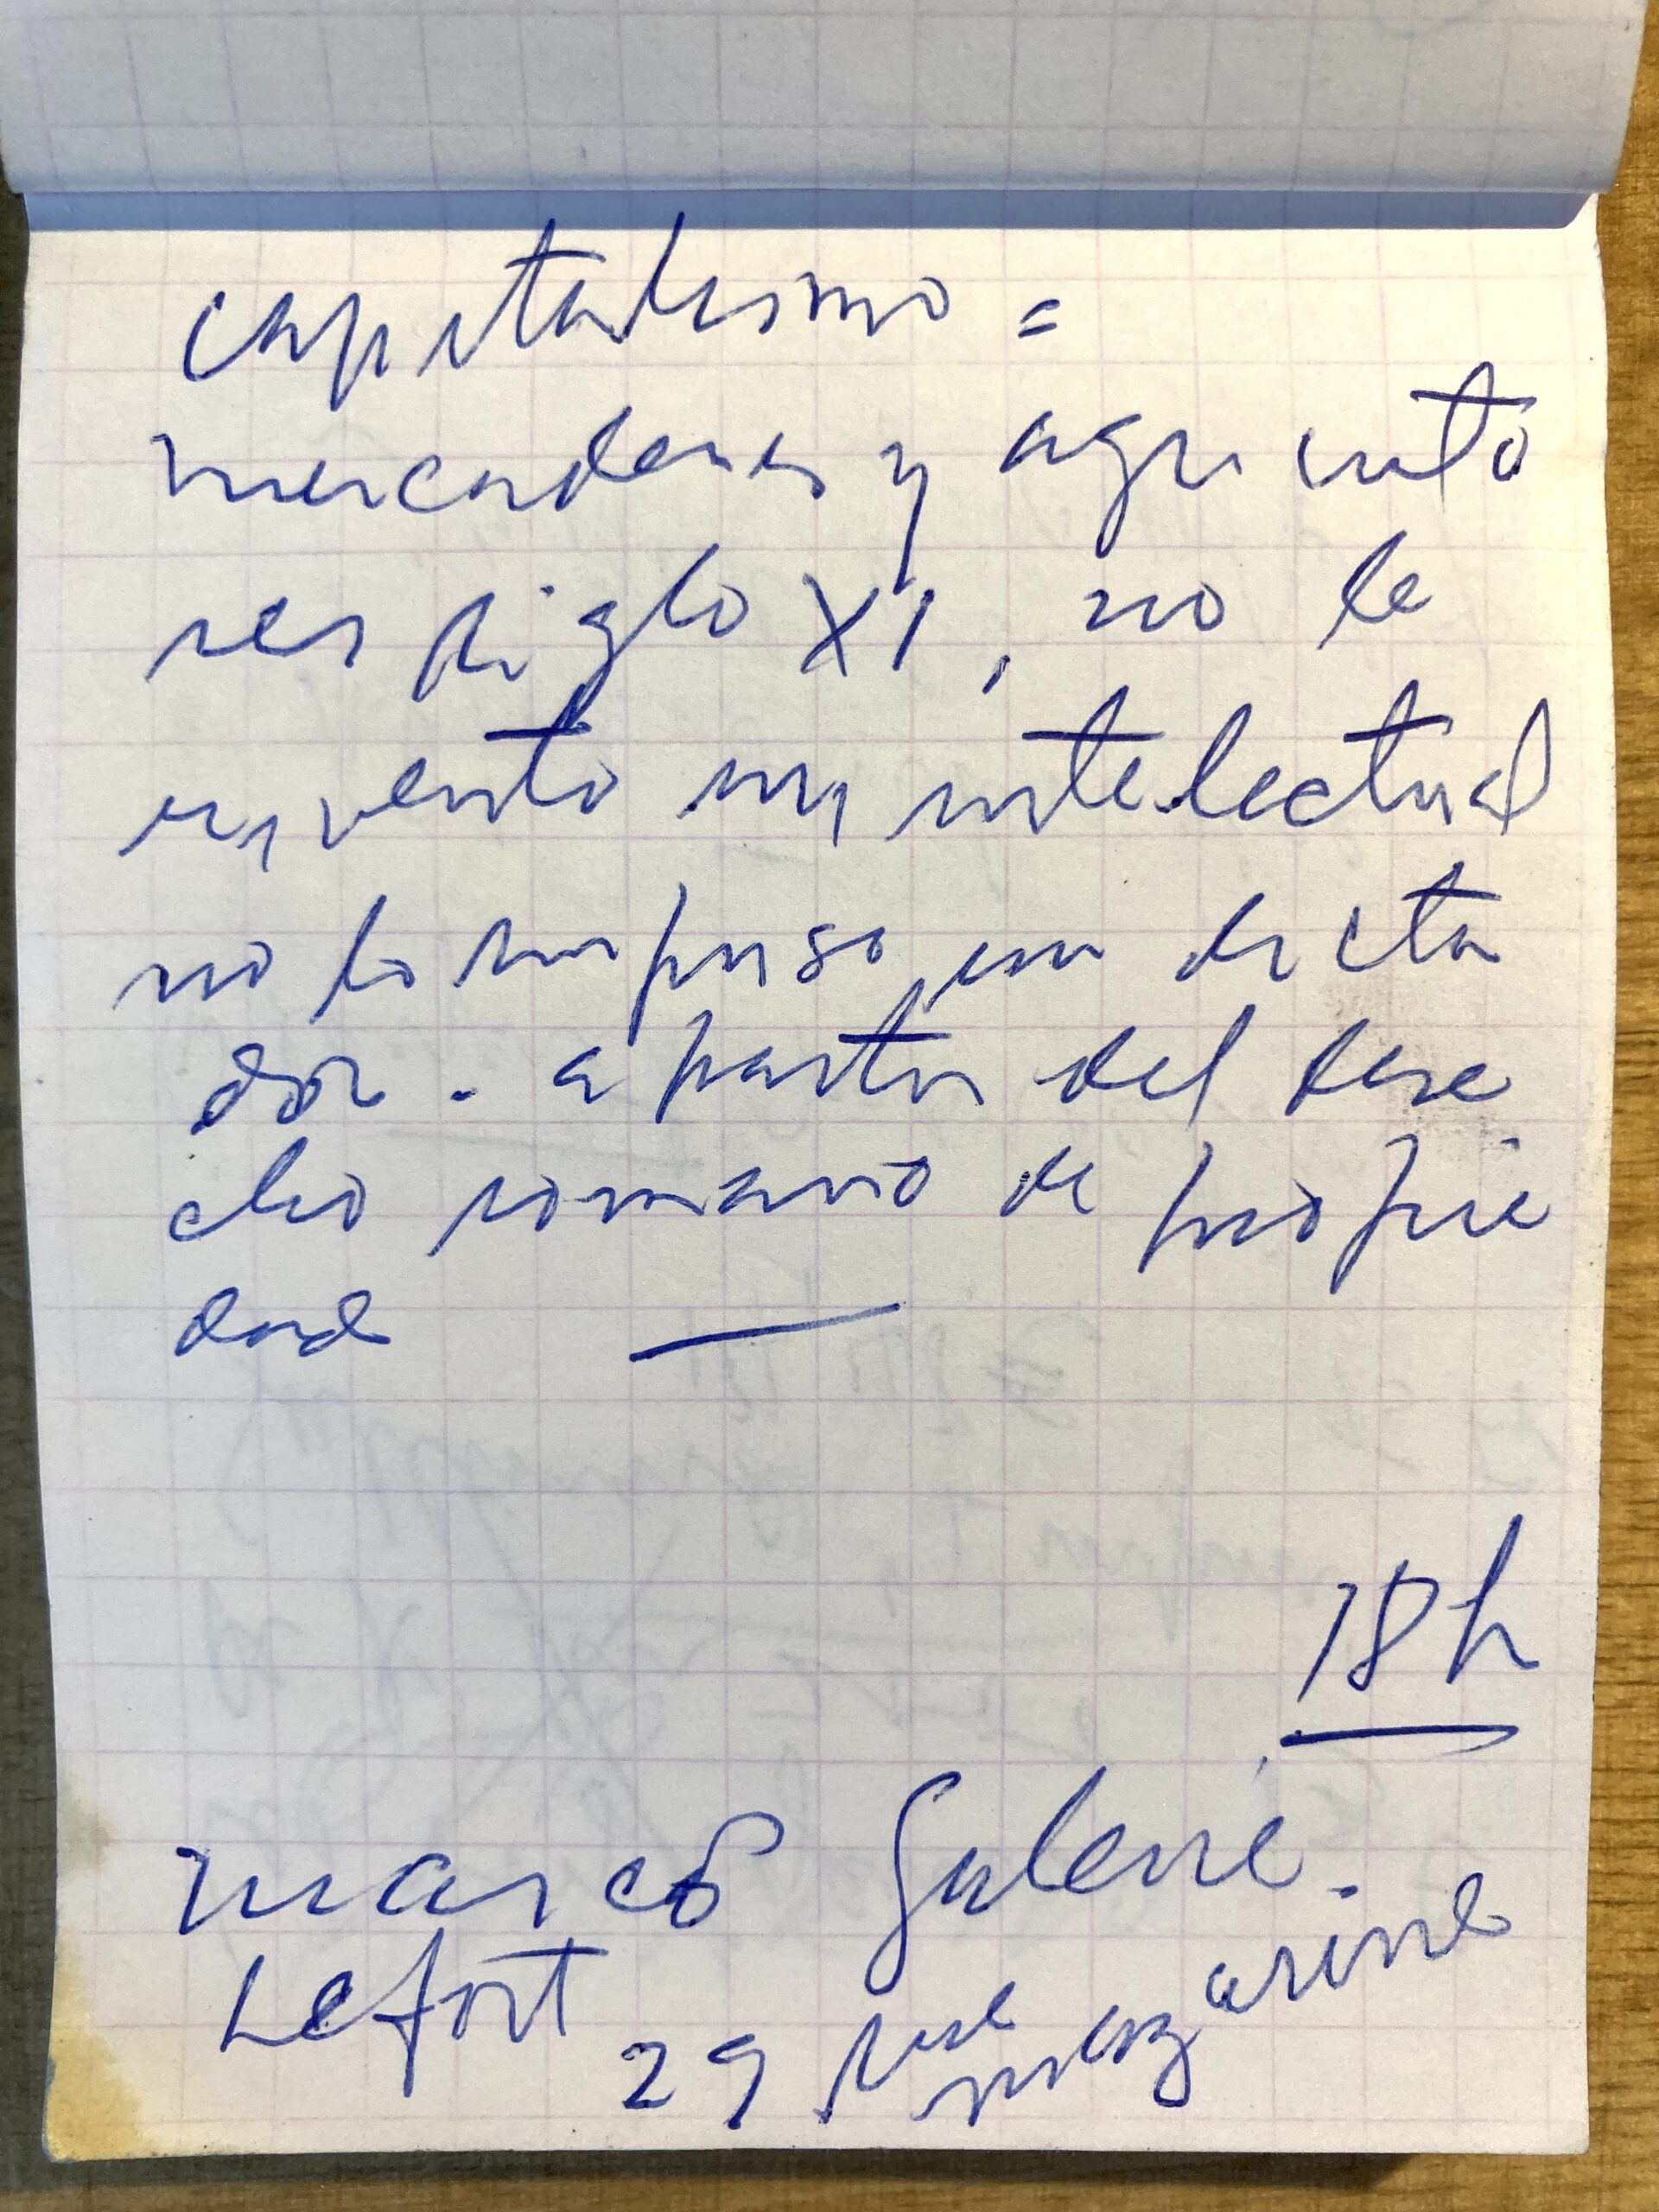 capitalismo =
mercaderes y agriculto
res siglo XI, no le
invento un intelectual
no lo impuso un dicta
dor. a partir del dere
cho romano de propie
dad
18h
marco Galerie.
Lefort
29 rue mazarine